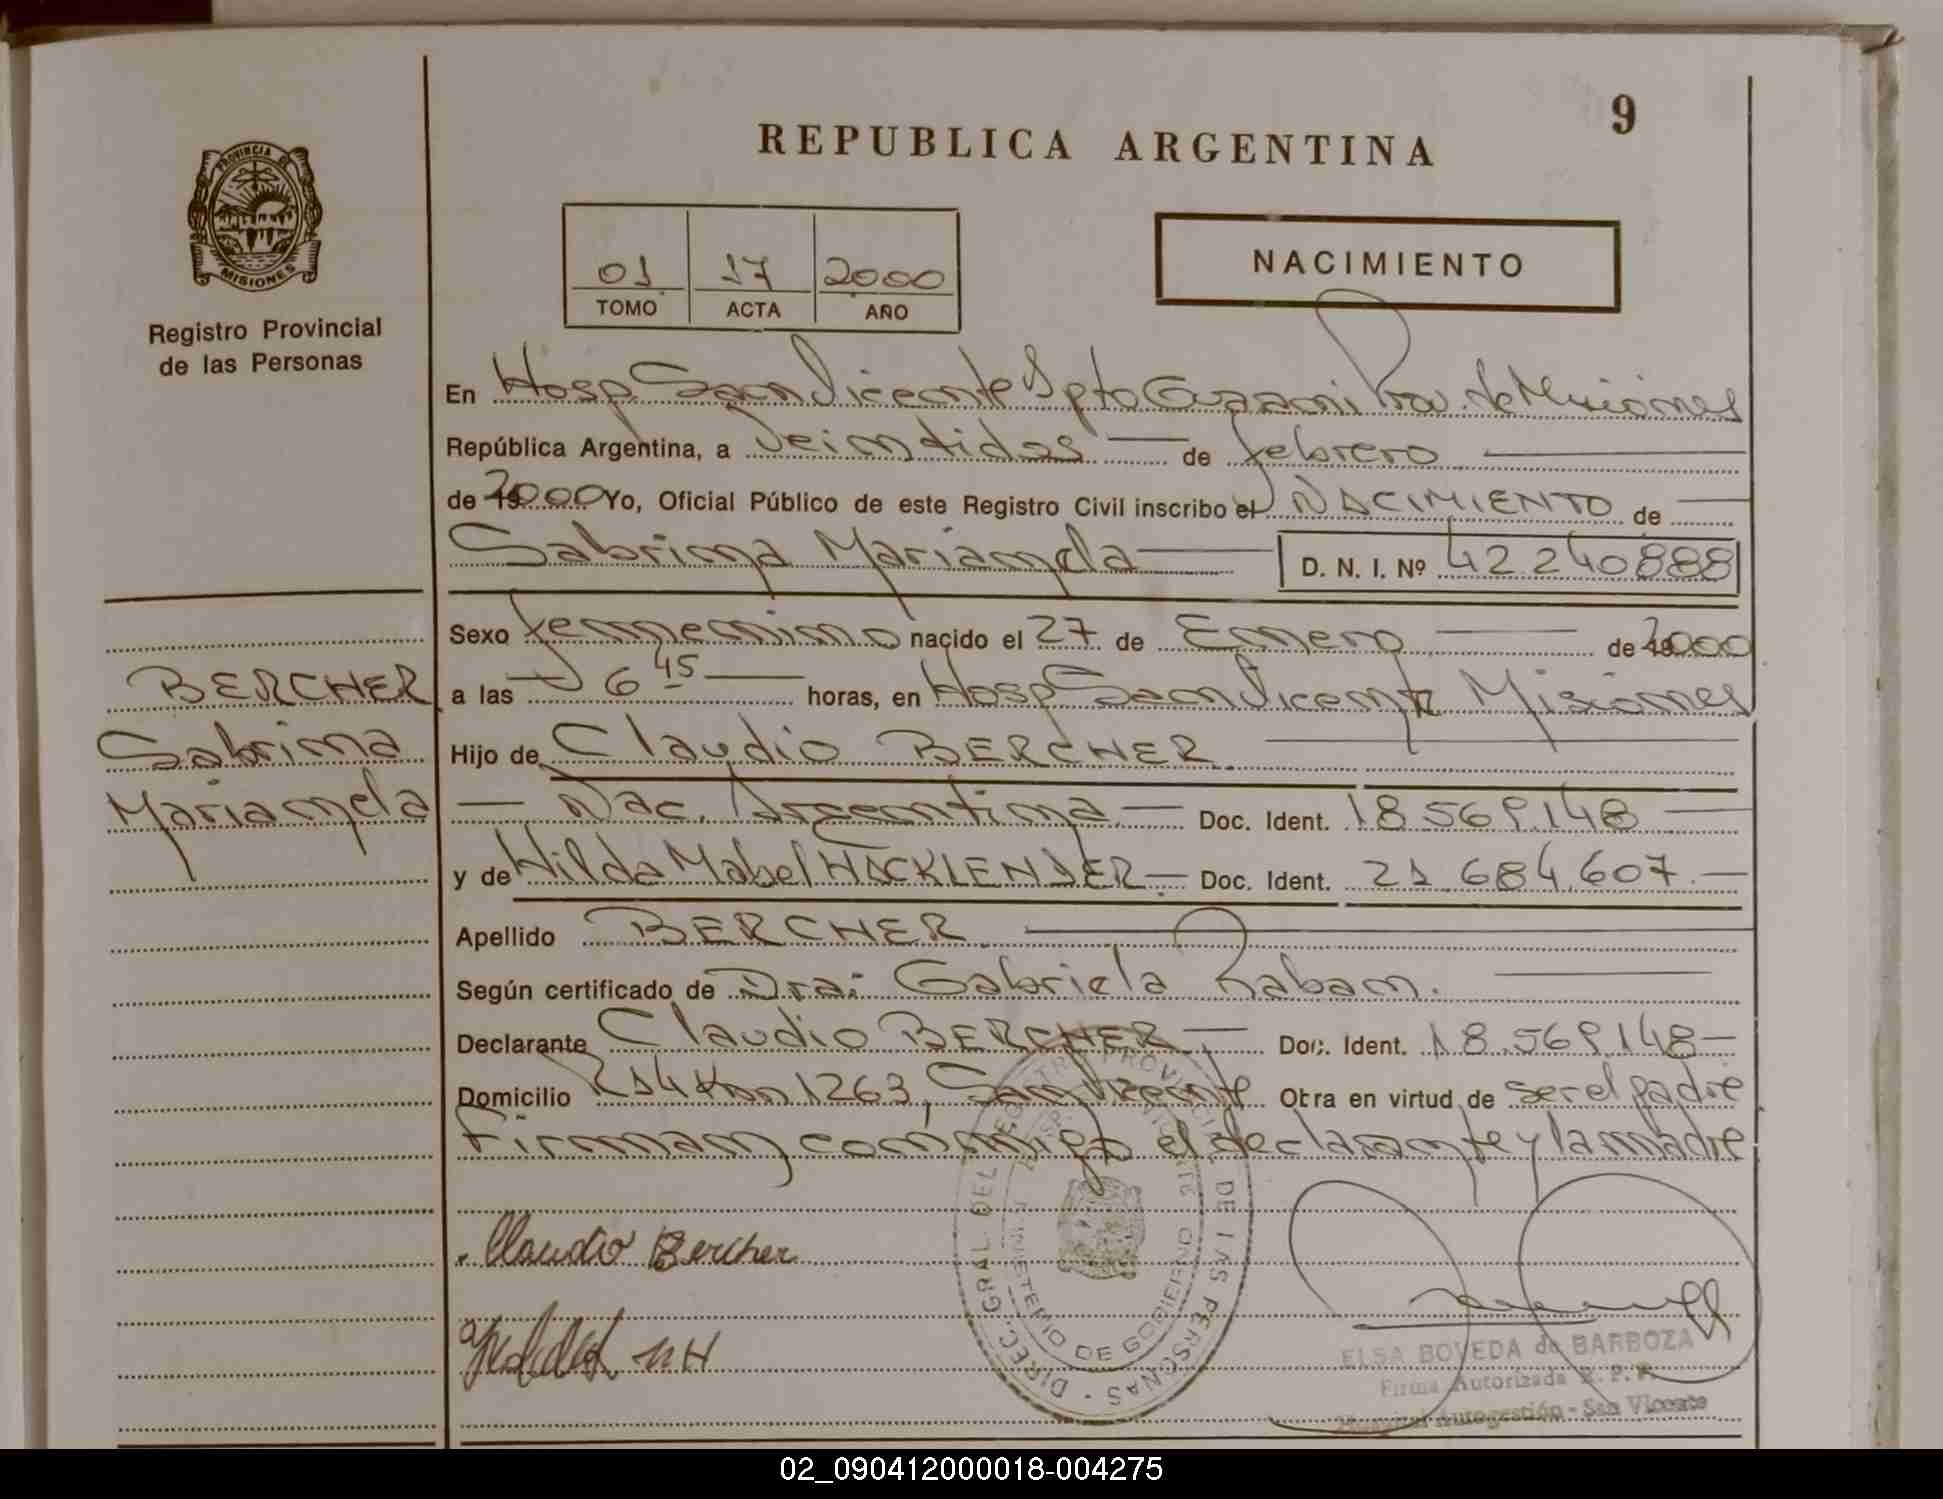 9
REPUBLICA ARGENTINA
PROVINCIA DE
MISIONES
Registro Provincial
de las Personas
01 17 2000
TOMO ACTA AÑO
NACIMIENTO
En Hosp San Vicente Dpto Guarani Prov. de Misiones
República Argentina, a Veintidos de febrero
de 2000 Yo, Oficial Público de este Registro Civil inscribo el NACIMIENTO de
Sabrina Marianela D. N. I. Nº 42 240888
Sexo femenino nacido el 27 de Enero de 2000
a las 6 45 horas, en Hosp San Vicente Misiones
Hijo de Claudio BERCHER
Nac. Argentina Doc. Ident. 18.569.148
y de Hilda Mabel HACKLENDER Doc. Ident. 21.684.607
Apellido BERCHER
Según certificado de Dra: Gabriela Raban.
Declarante Claudio BERCHER Doc. Ident. 18.569.148
Domicilio R14 Km 1263, San Vicente Obra en virtud de ser el padre
Firman conmigo el declarante y la madre
BERCHER
Sabrina
Marianela
Claudio Bercher
DIREC. GRAL. DEL REGISTRO PROVINCIAL DE LAS PERSONAS
MINISTERIO DE GOBIERNO
ELSA BOVEDA de BARBOZA
Firma Autorizada R. P. P.
Hospital Autogestión - San Vicente
02_090412000018-004275